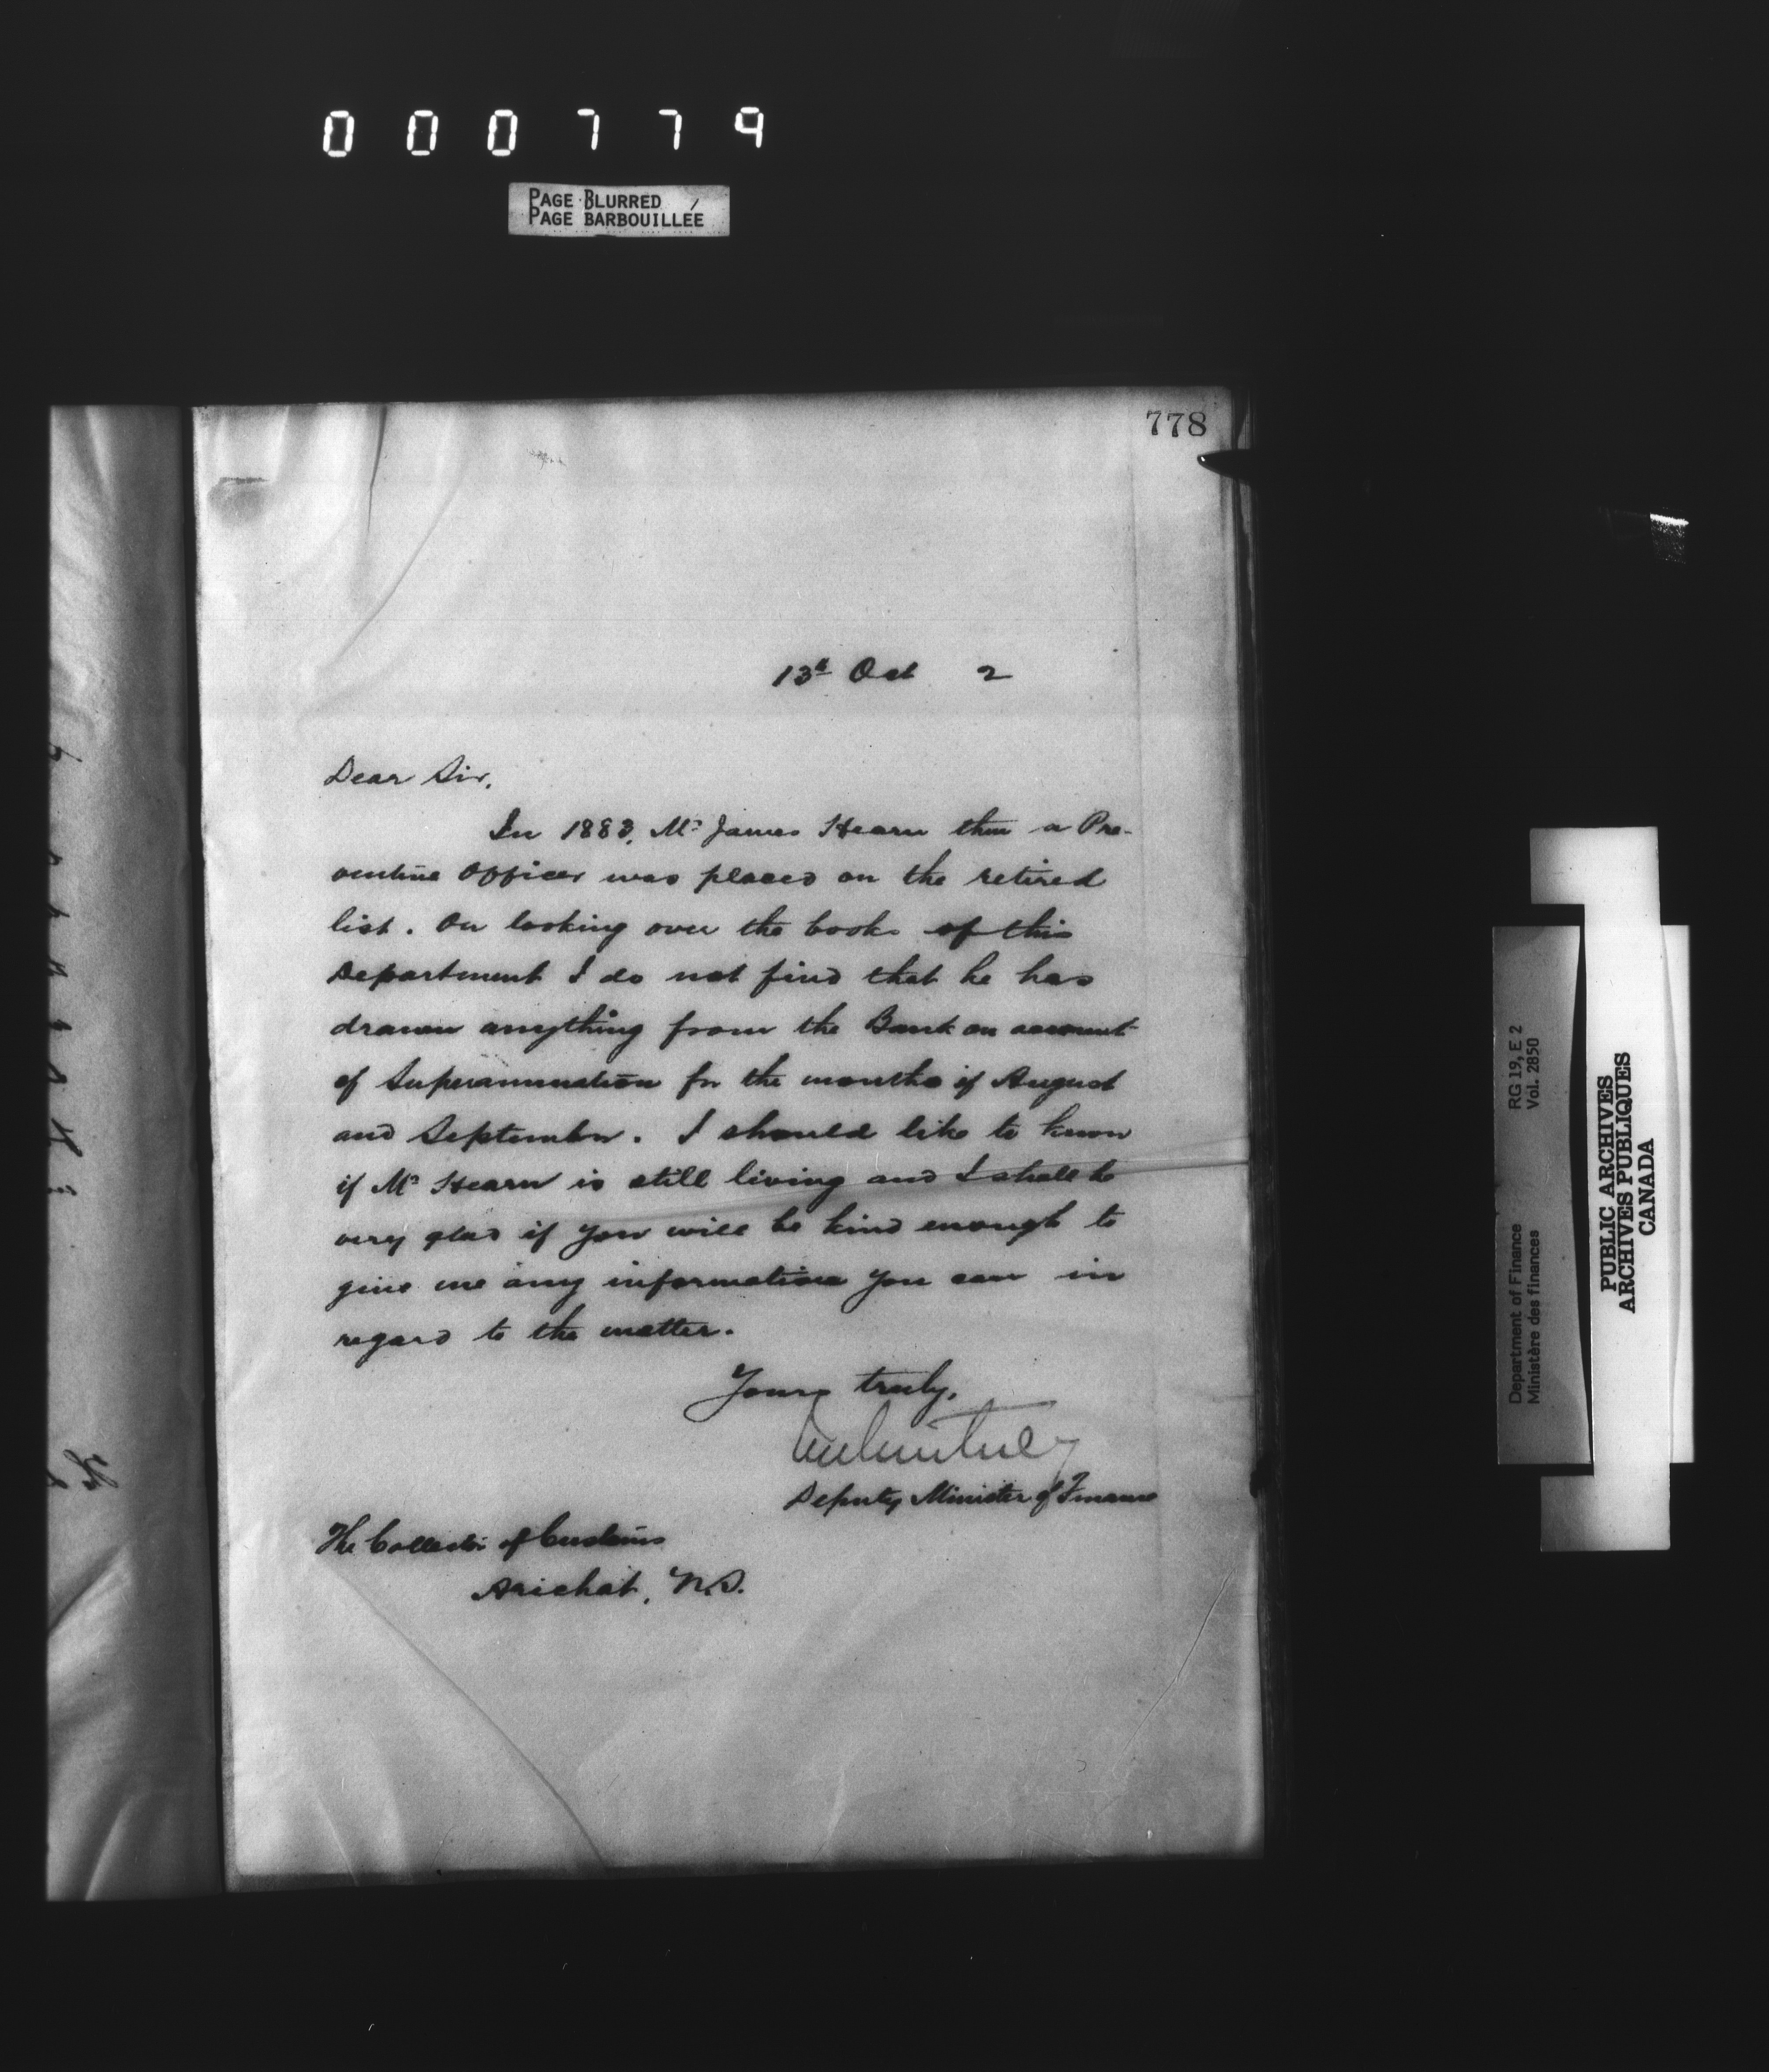 000779
PAGE BLURRED
PAGE BARBOUILLÉE
778
13th Oct 2
Dear Sir,
In 1883, Mr James Hearn then a Pre-
ventive Officer was placed on the retired
list. On looking over the books of this
Department I do not find that he has
drawn anything from the Bank on account
of Superannuation for the months of August
and September. I should like to know
if Mr Hearn is still living and I shall be
very glad if you will be kind enough to
give me any information you can in
regard to the matter.
Yours truly,
Deputy Minister of Finance
The Collector of Customs
Arichat, N.S.
Department of Finance RG 19, E 2
Ministère des finances Vol. 2850
PUBLIC ARCHIVES
ARCHIVES PUBLIQUES
CANADA